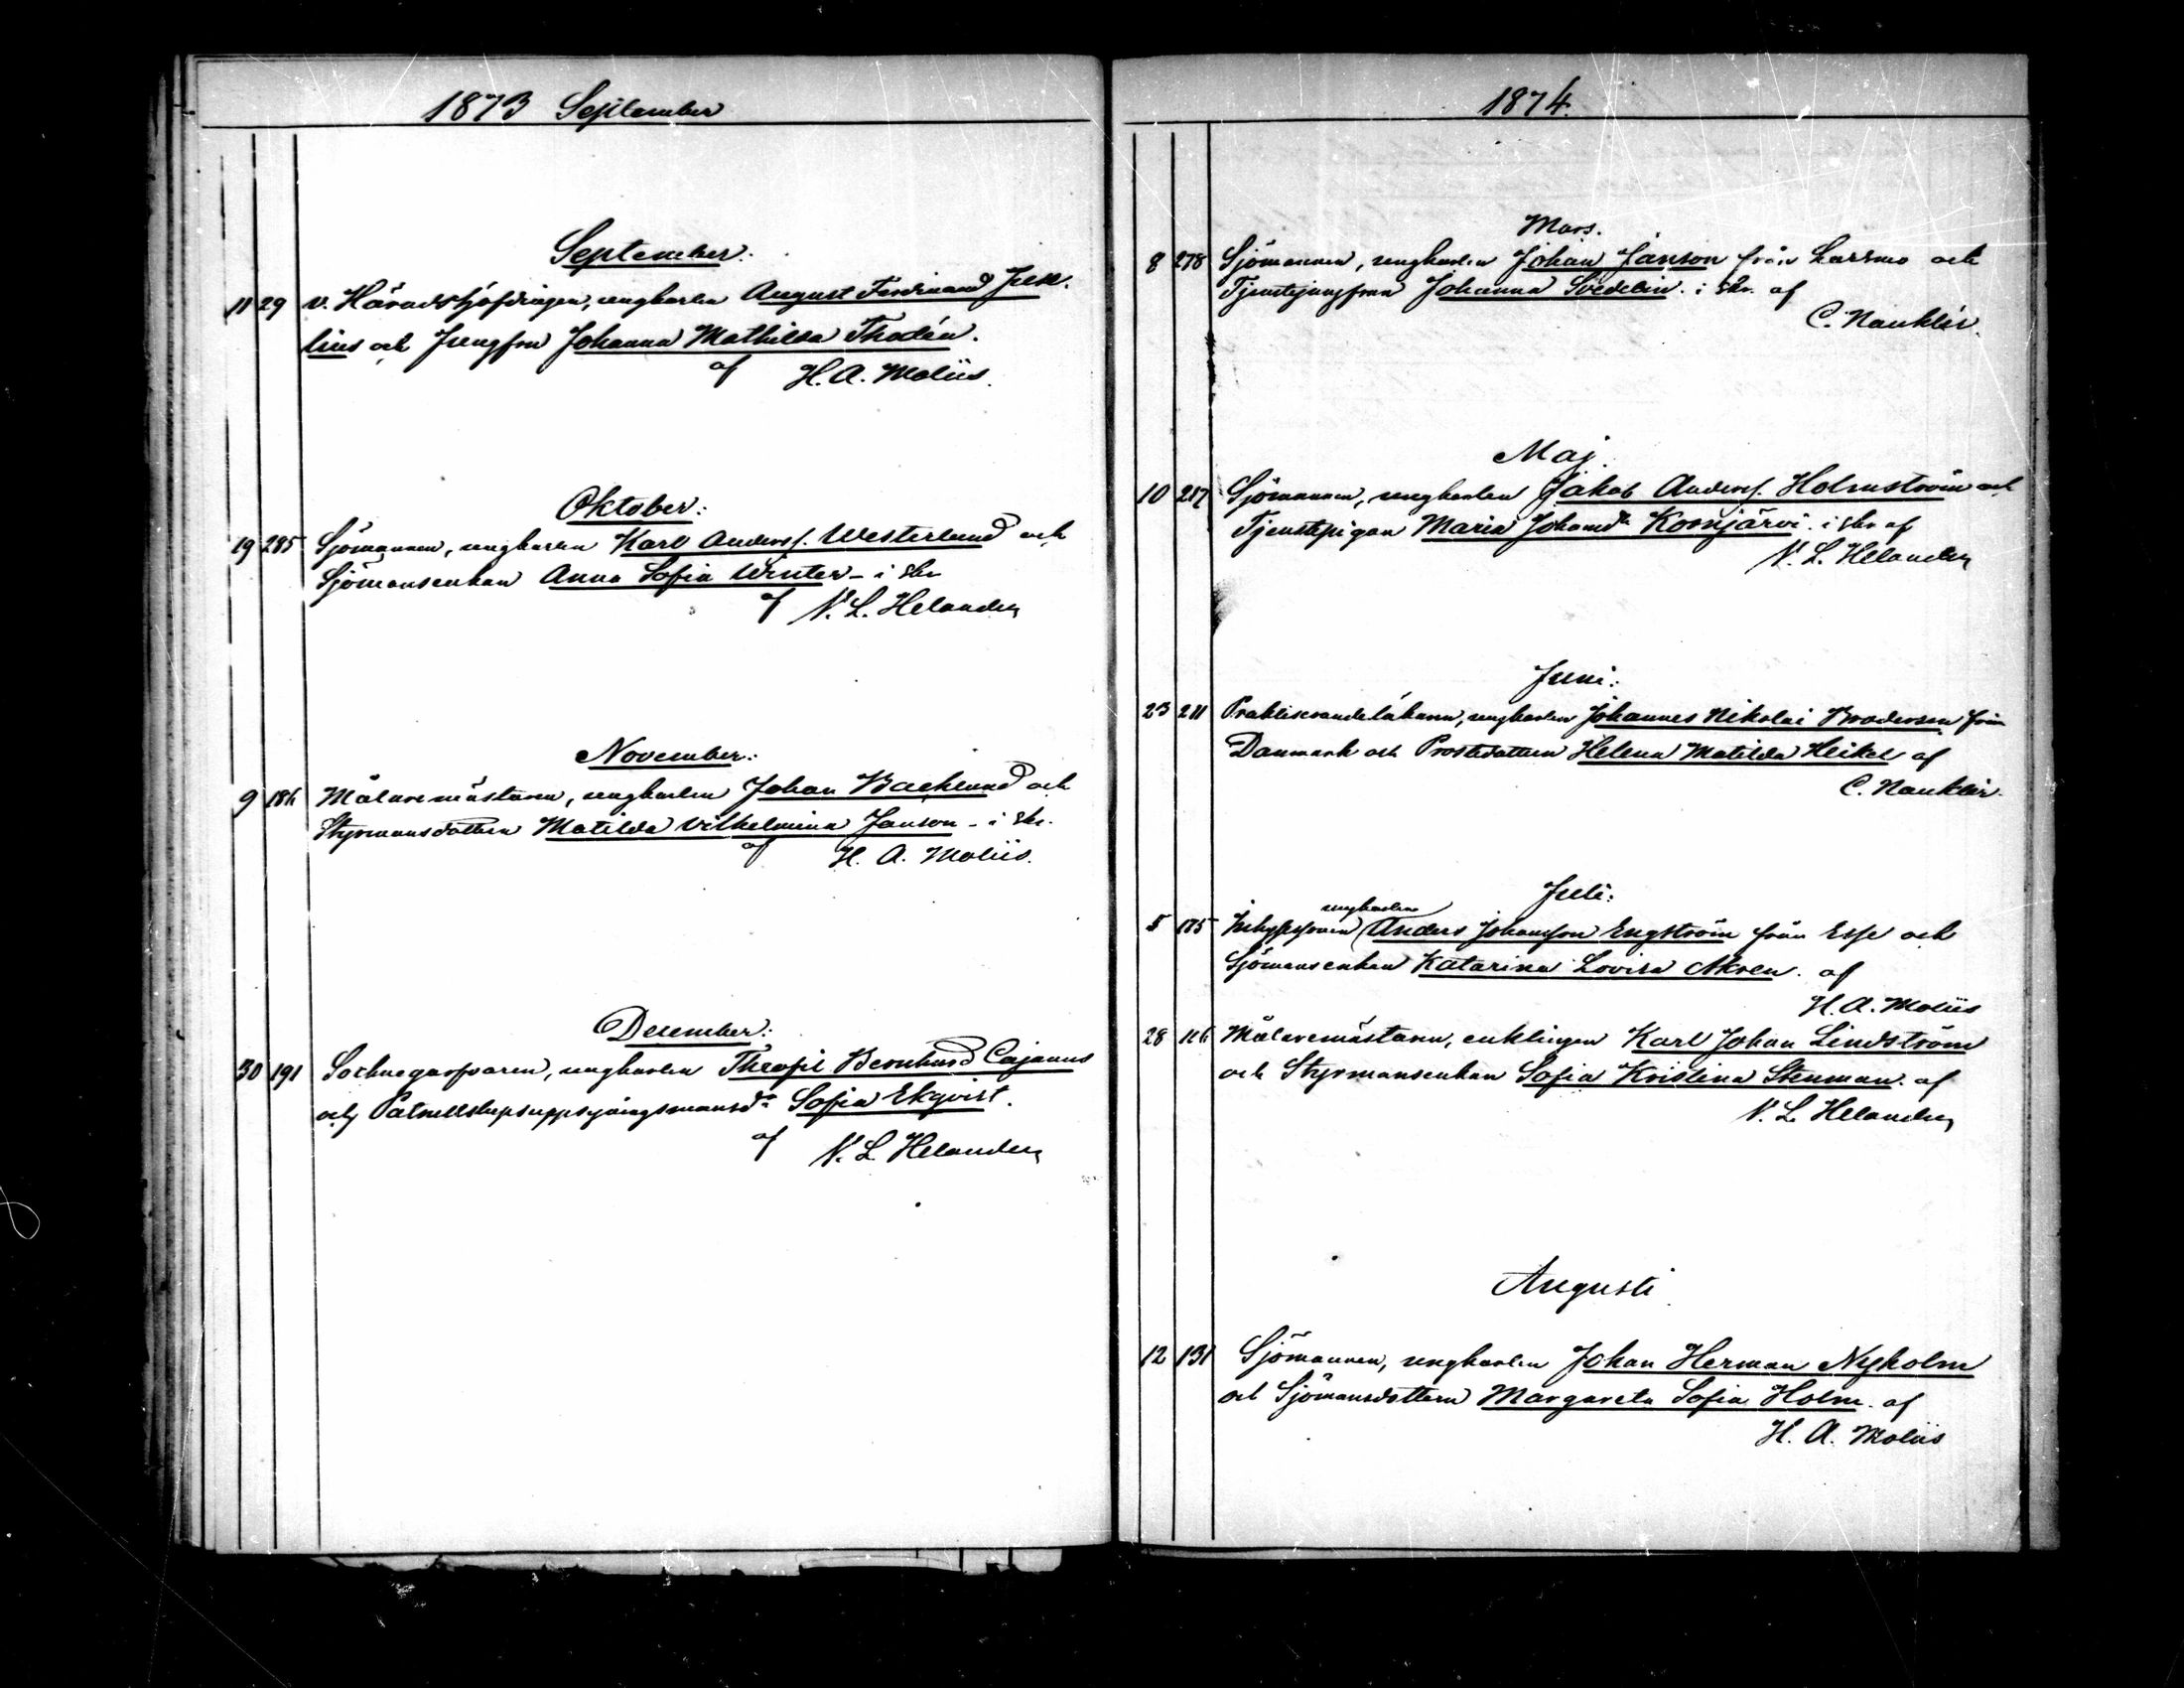 1873 September
September:
11 29 v. Häradshöfdingen, ungkarlen August Ferdinand
lius och Jungfru Johanna Mathilda Thodén.
af H. A. Moliis.
Oktober:
19 285 Sjömannen, ungkarlen Karl Anderss. Westerlund och
Sjömansenkan Anna Sofia Winter – i skr
af N. L. Helander
November:
9 186 Målaremästaren, ungkarlen Johan Backlund och
Styrmansdottern Matilda Vilhelmina Janson – i skr.
af H. A. Moliis.
December:
30 191 Socknegarfvaren, ungkarlen Theofil Bernhard Cajanus
och Sofia Ekqvist.
af N. L. Helander
1874.
Mars.
8 278 Sjömannen, ungkarlen Johan Janson från Larsmo och
Tjenstejungfrun Johanna Svedelin. i skr. af
C. Nauklér.
Maj.
10 217 Sjömannen, ungkarlen Jakob Anderss. Holmström och
Tjenstepigan Maria Johansdr Kosnjärvi. i skr af
N. L. Helander
Juni:
23 211 Praktiserande läkaren, ungkarlen Johannes Nikolai Brodersen från
Danmark och Prostedottern Helena Matilda Heikel af
C. Nauklér.
Juli:
ungkarlen
5 175 Anders Johansson Engström från Esse och
Sjömansenkan Katarina Lovisa af
H. A. Moliis
28 Målaremästaren, enklingen Karl Johan Lindström
och Styrmansenkan Sofia Kristina Stenman. af
N. L. Helander
Augusti
12 131 Sjömannen, ungkarlen Johan Herman Nyholm
och Sjömansdottern Margareta Sofia Holm. af
H. A. Moliis